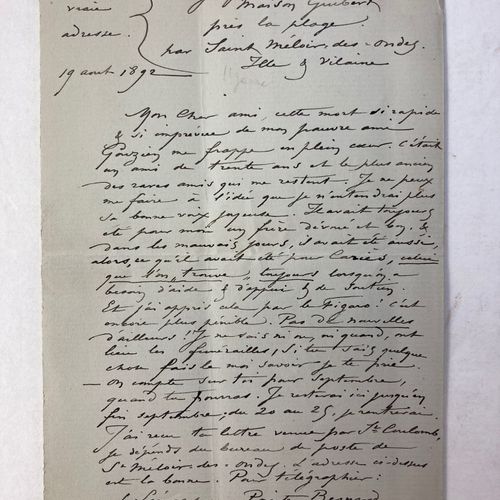 vraie Maison Guibert
adresse. près la plage
par Saint Méloir-des-ondes.
19 aout 1892 Ille & Vilaine
Mon cher ami, cette mort si rapide
& si imprévue de mon pauvre ami
me frappe en plein cœur. C'était
un ami de trente ans et le plus ancien
des rares amis qui me restent. Je ne peux
me faire à l'idée que je n'entendrai plus
sa bonne voix joyeuse. Il avait toujours
été pour moi un frère dévoué et bon, &
dans les mauvais jours, il avait été aussi,
alors, ce qu'il avait été pour Cariès, celui
que l'on trouve toujours lorsqu'on a
besoin d'aide & d'appui & de soutien.
Et j'ai appris cela par le Figaro! c'est
encore plus pénible. Pas de nouvelles
d'ailleurs. Je ne sais ni où, ni quand, ont
lieu les funérailles; si tu sais quelque
chose fais le moi savoir je te prie.
— On compte sur toi pour Septembre,
quand tu pourras. Je resterai ici jusqu'en
fin septembre; du 20 au 25, je rentrerai.
J'ai reçu ta lettre venue par St Coulomb,
je dépends du bureau de poste de
St Méloir-des-ondes. L'adresse ci-dessus
est la bonne. Pour télégraphier: